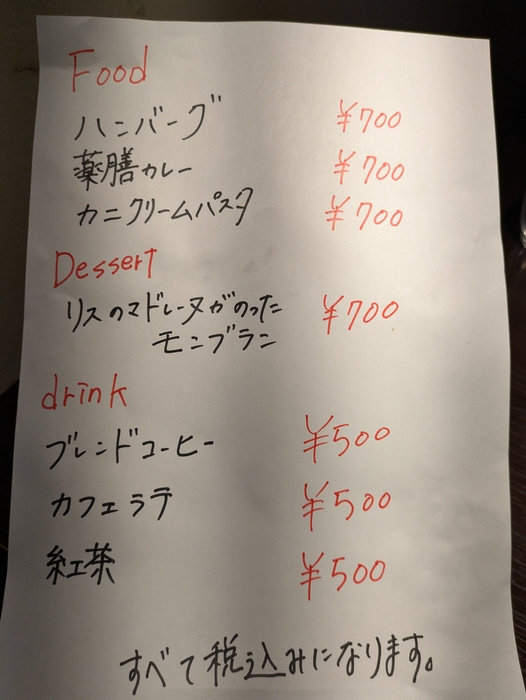 Food
ハンバーグ ¥700
薬膳カレー ¥700
カニクリームパスタ ¥700
Dessert
リスのマドレーヌがのった ¥700
モンブラン
drink
ブレンドコーヒー ¥500
カフェラテ ¥500
紅茶 ¥500
すべて税込みになります。